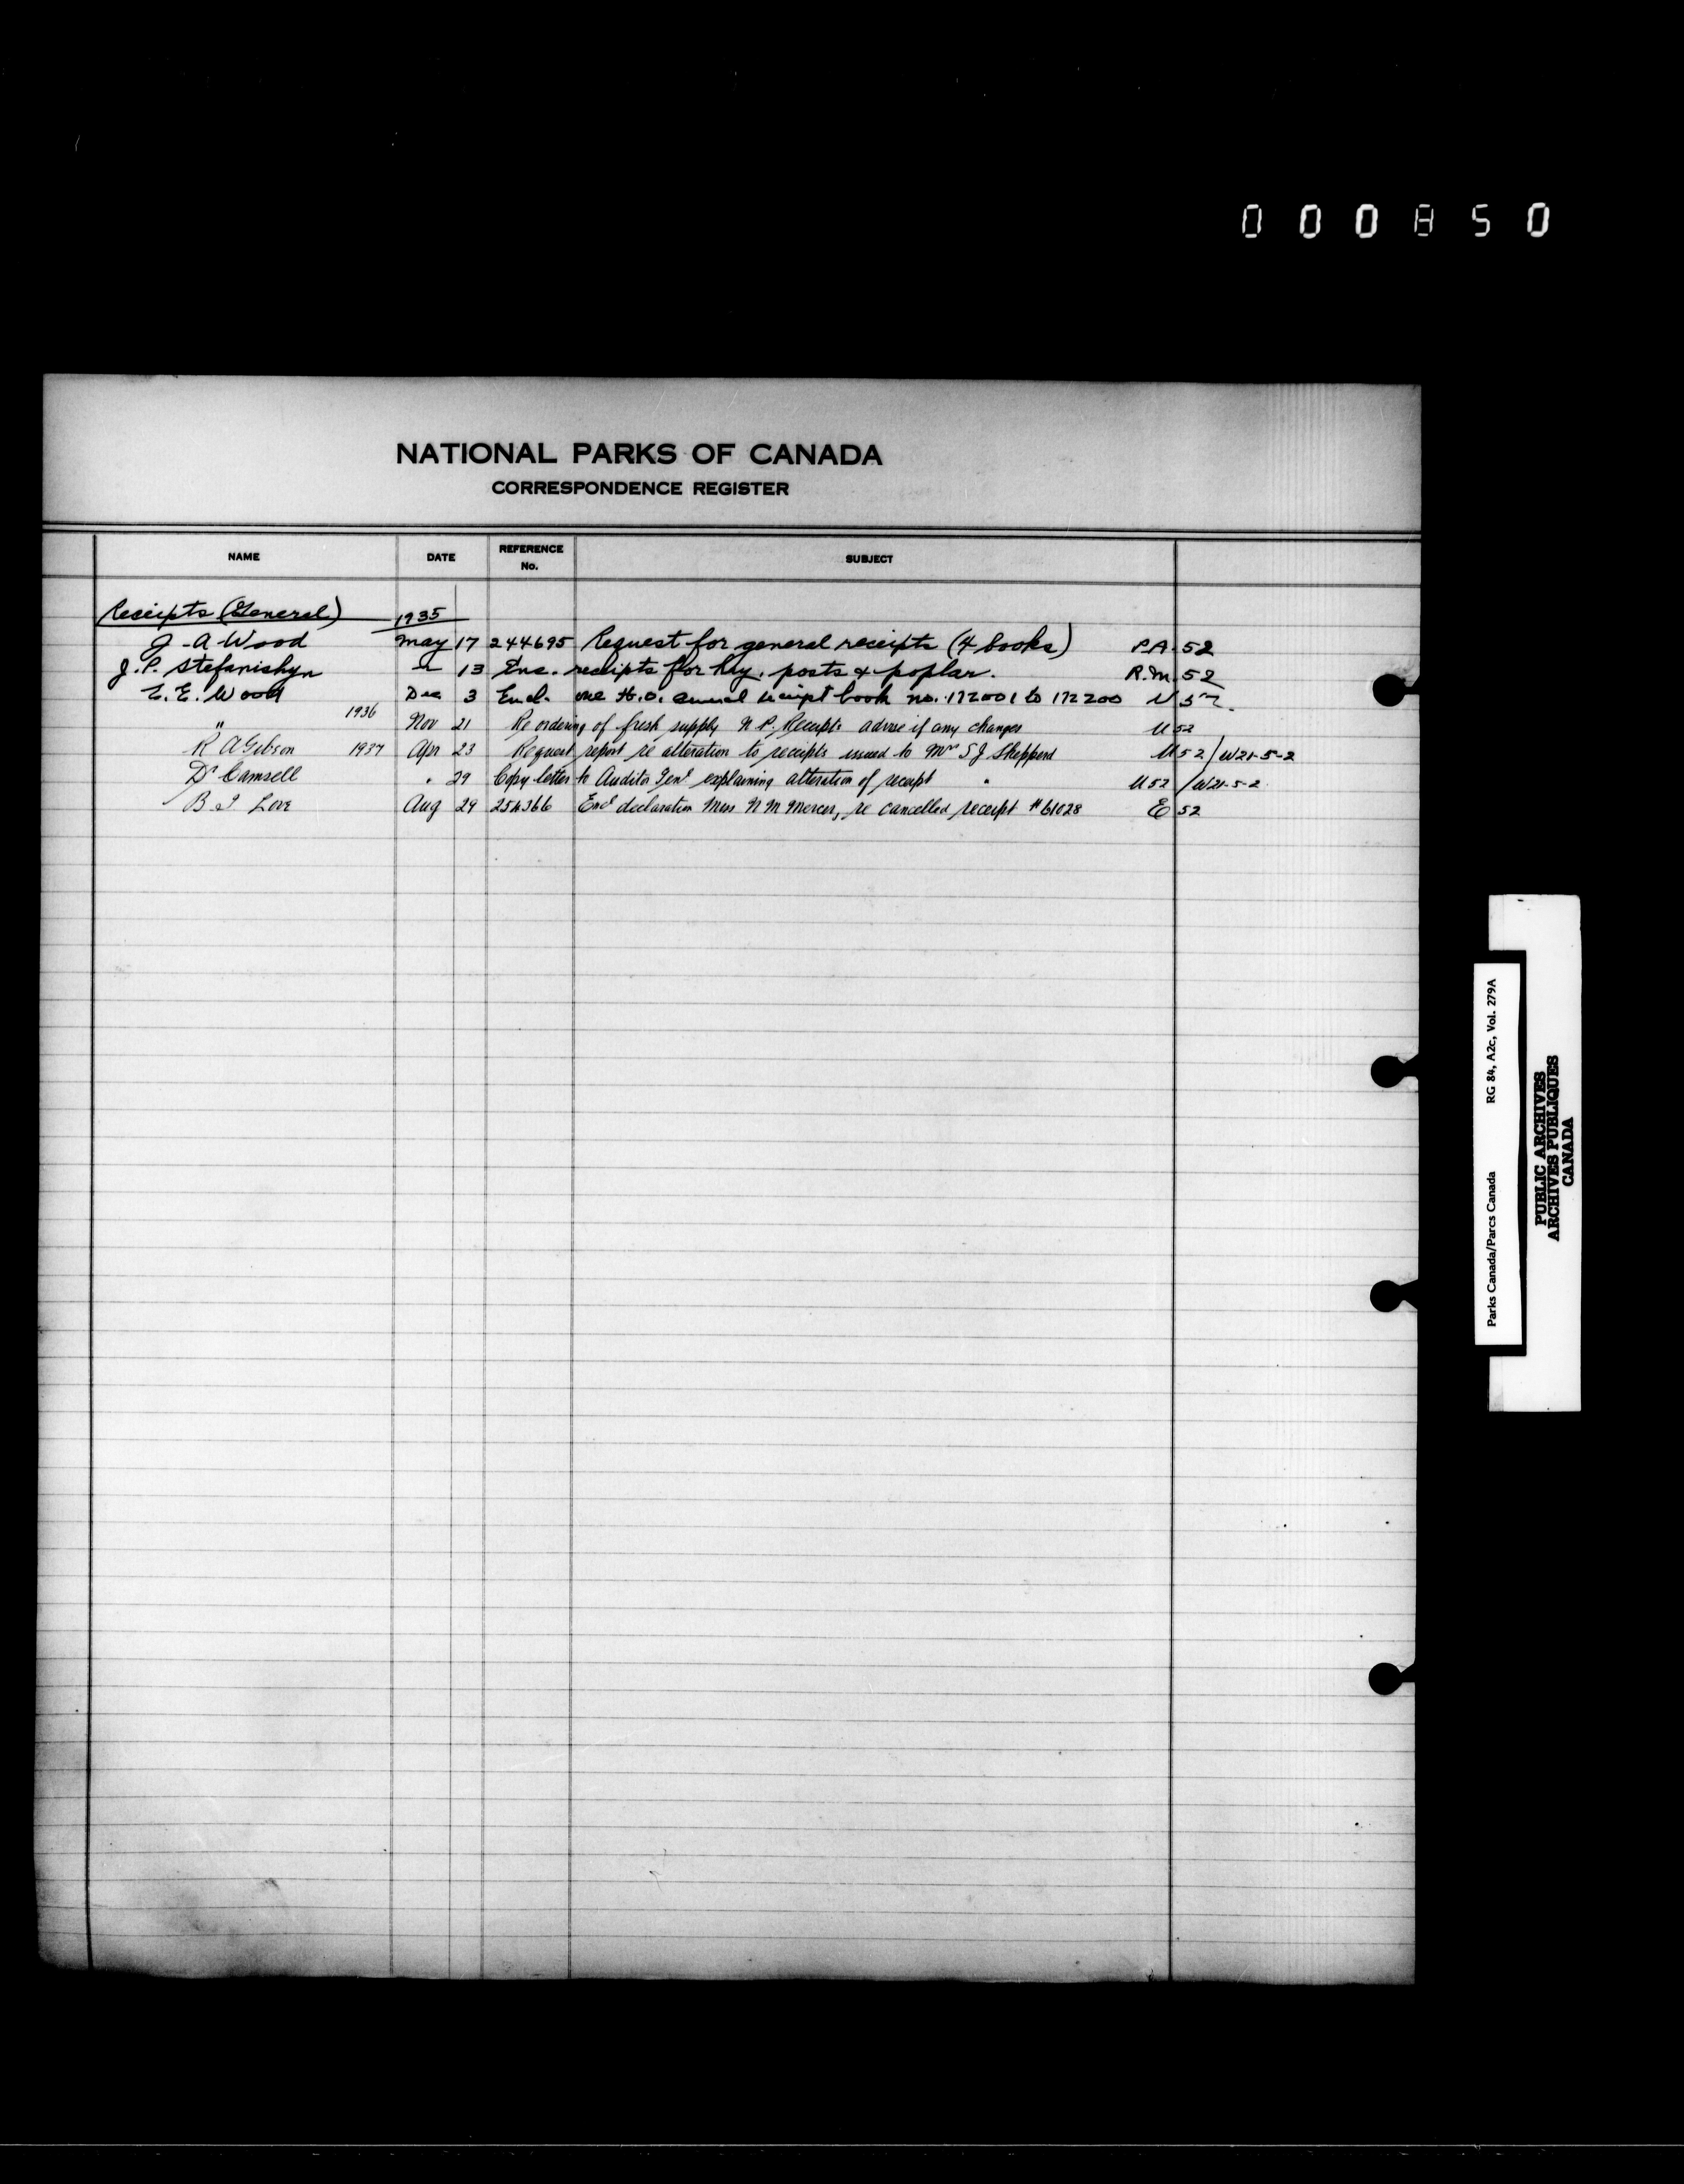 000850
NATIONAL PARKS OF CANADA
CORRESPONDENCE REGISTER
NAME DATE REFERENCE No. SUBJECT
Receipts (General) 1935
J. A Wood May 17 244695 Request for general receipts (4 books) P.A. 52
J. P. Stefanishyn " 13 Enc. receipts for hay, posts & poplar. R.M. 52
E. E. Wood Dec 3 Encl. one H.O. receipt book no. 172001 to 172200 U 52.
" 1936 Nov 21 Re ordering of fresh supply N. P. Receipts advise if any changes U 52
R A Gibson 1937 Apr 23 Request report re alteration to receipts issued to Mrs S J Sheppard U 52 / W21-5-2
Dr Camsell " 29 Copy letter to Auditor Genl explaining alteration of receipt " U 52 / W21-5-2
B I Love Aug 29 254366 Encl declaration Miss N M Mercer, re cancelled receipt # 61028 E 52
Parks Canada/Parcs Canada RG 84, A2c, Vol. 279A
PUBLIC ARCHIVES
ARCHIVES PUBLIQUES
CANADA